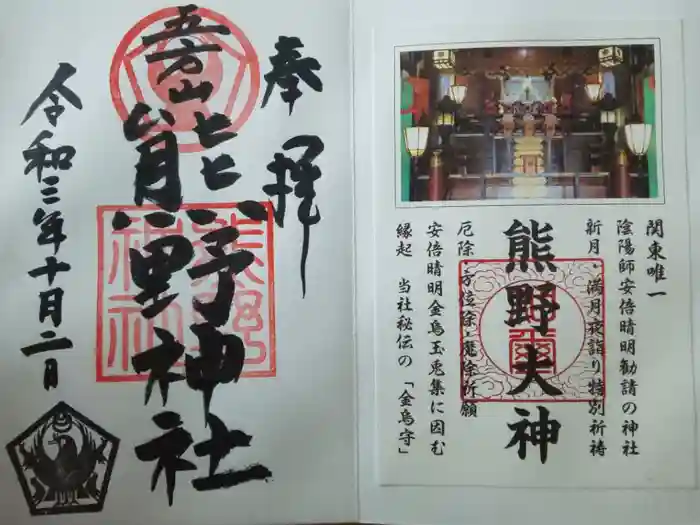 奉拝
五方山
熊野神社
令和三年十月二日
熊野神社
関東唯一
陰陽師安倍晴明勧請の神社
新月・満月夜詣り特別祈祷
熊野大神
厄除・方位除・魔除祈願
安倍晴明金烏玉兎集に因む
縁起　当社秘伝の「金烏守」